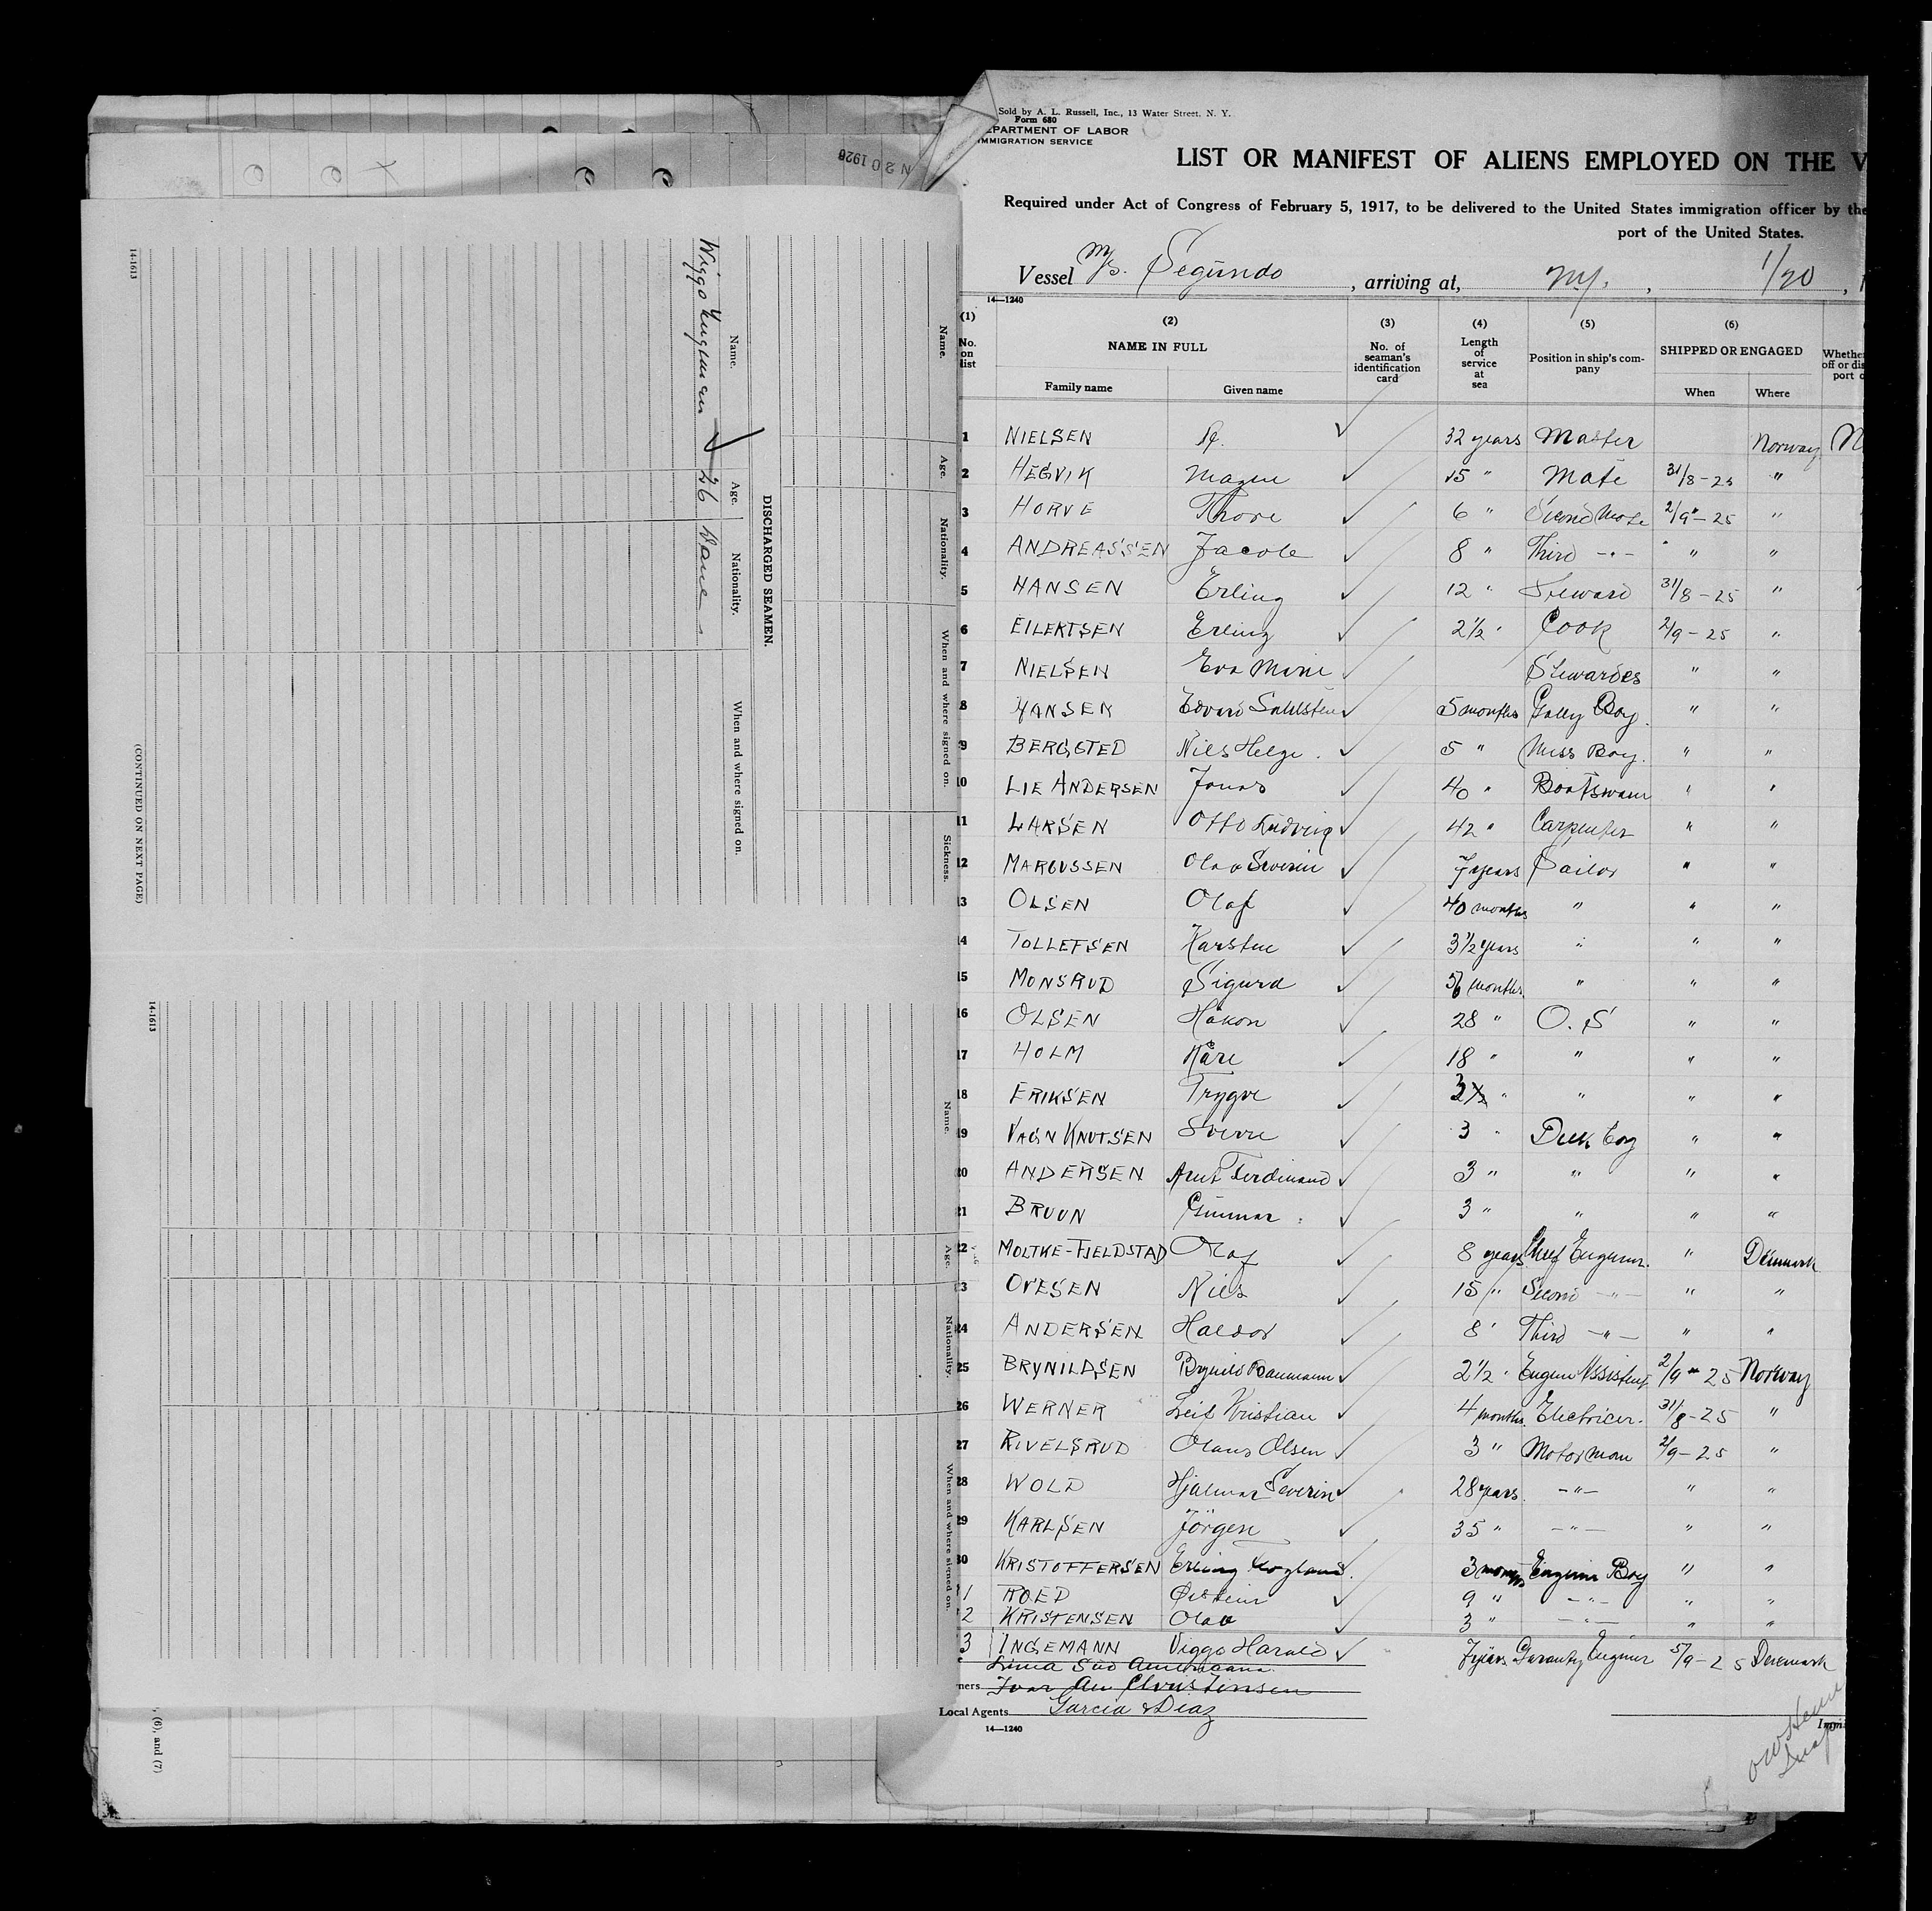 Sold by A. L. Russell, Inc., 13 Water Street, N. Y.
Form 680
EPARTMENT OF LABOR
IMMIGRATION SERVICE
LIST OR MANIFEST OF ALIENS EMPLOYED ON THE V
Required under Act of Congress of February 5, 1917, to be delivered to the United States immigration officer by the
port of the United States.
Vessel M/S. Segundo, arriving at, N.Y., 1/20,
14—1240
(1) (2) (3) (4) (5) (6)
No. on list NAME IN FULL No. of seaman's identification card Length of service at sea Position in ship's company SHIPPED OR ENGAGED Whethe off or dis port o
Family name Given name When Where
1 NIELSEN 32 years Master Norway N
2 HEGVIK Magne 15 " Mate 31/8-25 "
3 HORVE Thore 6 " Second Mate 2/9-25 "
4 ANDREASSEN Jacob 8 " Third -"- " "
5 HANSEN Erling 12 " Steward 31/8-25 "
6 EILERTSEN Erling 2 1/2 " Cook 2/9-25 "
7 NIELSEN Eva Marie Stewardes " "
8 HANSEN Edvard Sahlsten 5 months Gally Boy. " "
9 BERGSTED Niels Helge. 5 " Mess Boy. " "
10 LIE ANDERSEN Jonas 40 " Boatswain " "
11 LARSEN Otto Ludvig 42 " Carpenter " "
12 MARCUSSEN Olav Severin 7 years Sailor " "
13 OLSEN Olaf 40 months " " "
14 TOLLEFSEN Karsten 3 1/2 years " " "
15 MONSRUD Sigurd 56 months " " "
16 OLSEN Håkon 28 " O.S " "
17 HOLM Kåre 18 " " " "
18 ERIKSEN Trygve " " " "
19 VAGN KNUTSEN Sverre 3 " Deck boy " "
20 ANDERSEN Arnt Ferdinand 3 " " " "
21 BRUUN Gunnar 3 " " " "
22 MOLTKE-FJELDSTAD Olaf 8 years Chief Engineer. " Denmark
23 OVESEN Niels 15 " Second -"- " "
24 ANDERSEN Haldor 8 " Third -"- " "
25 BRYNILDSEN Brynild Baumann 2 1/2 " Engine Assistent 2/9-25 Norway
26 WERNER Leif Kristian 4 months. Electricer. 31/8-25 "
27 RIVELSRUD Olaus Olsen 3 " Motorman 2/9-25 "
28 WOLD Hjalmar Severin 28 years. -"- " "
29 KARLSEN Jörgen 35 " -"- " "
30 KRISTOFFERSEN Erling 3 months Engine Boy " "
1 ROED Øistein 9 " -"- " "
2 KRISTENSEN Olav 3 " -"- " "
3 INGEMANN Viggo Harald 7 years Garanty Engineer 5/9-25 Denmark
Linea Sud Americana
ners Ivar An Christensen
Local Agents Garcia & Diaz
14—1240
Immi
N 20 1926
Name. Age. Nationality. When and where signed on. Sickness.
DISCHARGED SEAMEN.
Name. Age. Nationality. When and where signed on.
Wiggo Ingeman 26 Dane
14-1613
(CONTINUED ON NEXT PAGE)
Name. Age. Nationality. When and where signed on.
14-1613
, (6), and (7)